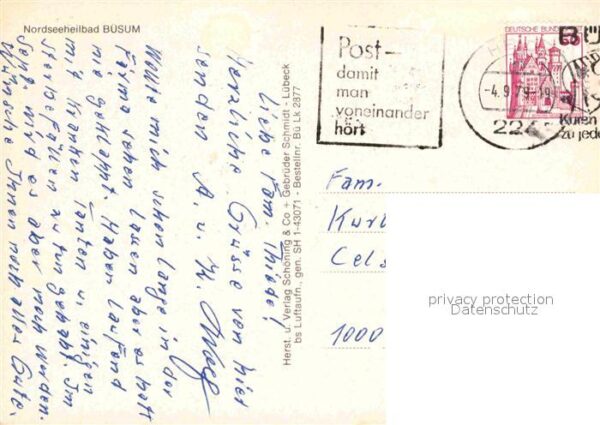 Nordseeheilbad BÜSUM
Liebe Fam. Thiede!
Herzliche Grüsse von hier
senden A. u. K.
Wollte mich schon lange in der
Firma sehen lassen aber es hat
nie geklappt. Haben laufend
mit kranken Tanten u. einigen
Sterbefällen zu tun gehabt. Im
Sept. wird es aber noch werden.
Wünsche Ihnen noch alles Gute.
Herst. u. Verlag Schöning & Co + Gebrüder Schmidt - Lübeck
bs Luftaufn., gen. SH 1-43071 - Bestellnr. Bü Lk 2877
Post-
damit
man
voneinander
hört
DEUTSCHE BUND
-4.9.79-19
224
BÜ
Kuren
zu jede
Fam.
Kur
Cels
1000
privacy protection
Datenschutz